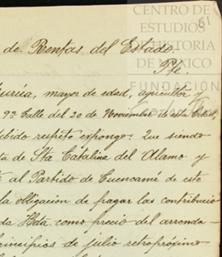 CENTRO DE
ESTUDIOS
HISTORIA
DE MÉXICO
FUNDACIÓN
51
de Rentas del Estado.
Pte.
García, mayor de edad, agricultor y
92 Calle del 20 de Noviembre de esta Ciudad,
debido respeto expongo: Que siendo
da de Sta Catalina del Alamo y
te al Partido de Cuencamé de este
la obligación de pagar las contribucio
da Hda como precio del arrenda
principios de julio retropróximo